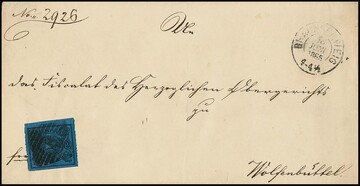 No. 2926
An
das Fiscalat des Herzoglichen Obergerichts
zu
Wolfenbüttel
BRAUNSCHWEIG
JUNI
1865
4-4½